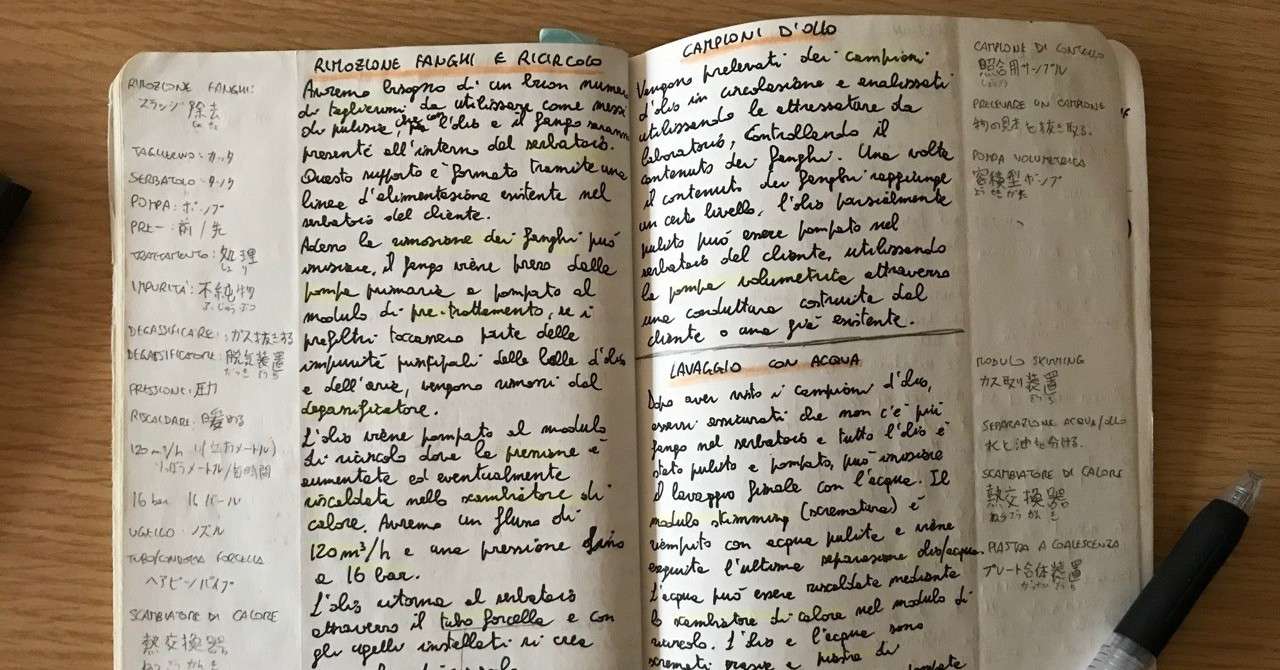 RIMOZIONE FANGHI:
スラッジ 除去
じょ きょ
TAGLIERINO: カッタ
SERBATOIO: タンク
POMPA: ポンプ
PRE-: 前 / 先
TRATTAMENTO: 処理
しょ り
IMPURITÀ: 不純物
ふ じゅん ぶつ
DEGASSIFICARE: ガス抜きする
DEGASSIFICATORE: 脱気装置
だっき そうち
PRESSIONE: 圧力
RISCALDARE: 暖める
120 m³/h
16 bar 16 バール
UGELLO: ノズル
TUBO/CONDOTTA FORCELLA
ヘアピンパイプ
SCAMBIATORE DI CALORE
熱交換器
ねつ こう かん き
RIMOZIONE FANGHI E RICIRCOLO
Avremo bisogno di un buon numero
di taglierini da utilizzare come mezzi
di pulizia, che l'olio e il fango saranno
presenti all'interno del serbatoio.
Questo supporto è formato tramite una
linea d'alimentazione esistente nel
serbatoio del cliente.
Adesso la rimozione dei fanghi può
iniziare, il fango viene preso dalla
pompa primaria e pompato al
modulo di pre-trattamento, se i
prefiltri toccano parte delle
impurità principali delle bolle d'olio
e dell'aria, vengono rimossi dal
degassificatore.
L'olio viene pompato al modulo
di ricircolo dove la pressione è
aumentata ed eventualmente
riscaldata nello scambiatore di
calore. Avremo un flusso di
120 m³/h e una pressione fino
a 16 bar.
L'olio ritorna al serbatoio
attraverso il tubo forcella e con
gli ugelli installati si crea
CAMPIONI D'OLIO
Vengono prelevati dei campioni
d'olio in circolazione e analizzati
utilizzando le attrezzature da
laboratorio, controllando il
contenuto dei fanghi. Una volta
il contenuto dei fanghi raggiunge
un certo livello, l'olio parzialmente
pulito può essere pompato nel
serbatoio del cliente, utilizzando
la pompa volumetrica attraverso
una conduttura costruita dal
cliente o una già esistente.
LAVAGGIO CON ACQUA
Dopo aver visto i campioni d'olio,
essersi assicurati che non c'è più
fango nel serbatoio e tutto l'olio è
stato pulito e pompato, può iniziare
il lavaggio finale con l'acqua. Il
modulo skimming (scrematura) è
riempito con acqua pulita e viene
eseguita l'ultima separazione olio/acqua.
L'acqua può essere riscaldata mediante
lo scambiatore di calore nel modulo di
ricircolo. L'olio e l'acqua sono
scremati grazie a piastra di
CAMPIONE DI CONTROLLO
照合用サンプル
しょうごう
PRELEVARE UN CAMPIONE
物の見本を抜き取る.
POMPA VOLUMETRICA
容積型ポンプ
よう せき がた
MODULO SKIMMING
ガス取り装置
そうち
SEPARAZIONE ACQUA/OLIO
水と油を分ける.
SCAMBIATORE DI CALORE
熱交換器
ねつ こう かん き
PIASTRA A COALESCENZA
プレート合体装置
がったい そうち